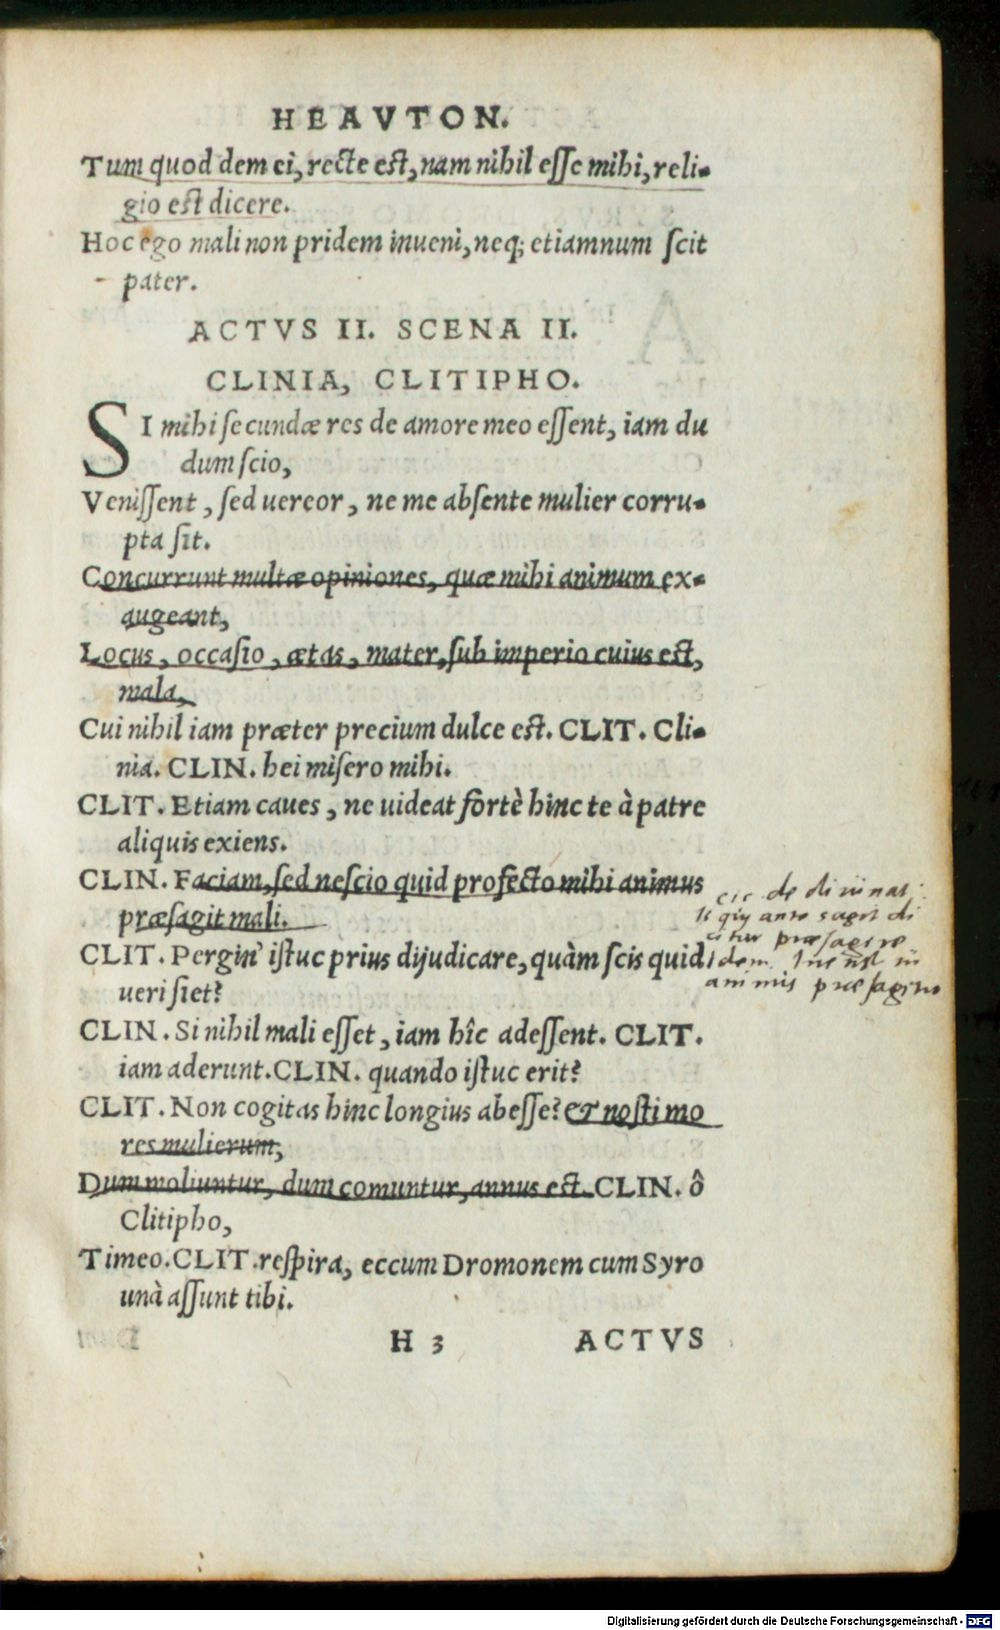 HEAVTON.
Tum quod dem ei, recte est, nam nihil esse mihi, reli-
gio est dicere.
Hoc ego mali non pridem inueni, neq; etiamnum scit
pater.
ACTVS II. SCENA II.
CLINIA, CLITIPHO.
SI mihi secundæ res de amore meo essent, iam du
dum scio,
Venissent, sed uereor, ne me absente mulier corru-
pta sit.
Concurrunt multæ opiniones, quæ mihi animum ex-
augeant,
Locus, occasio, ætas, mater, sub imperio cuius est,
mala,
Cui nihil iam præter precium dulce est. CLIT. Cli-
nia. CLIN. hei misero mihi.
CLIT. Etiam caues, ne uideat fortè hinc te à patre
aliquis exiens.
CLIN. Faciam, sed nescio quid profecto mihi animus
præsagit mali.
CLIT. Pergin' istuc prius dijudicare, quàm scis quid
ueri siet?
CLIN. Si nihil mali esset, iam hîc adessent. CLIT.
iam aderunt. CLIN. quando istuc erit?
CLIT. Non cogitas hinc longius abesse? & nosti mo
res mulierum,
Dum moliuntur, dum comuntur, annus est. CLIN. ô
Clitipho,
Timeo. CLIT. respira, eccum Dromonem cum Syro
unà assunt tibi.
H 3 ACTVS
cic de diuinat:
is qui ante sagit di
citur præsagire
idem inest in
animis præsagitio
Digitalisierung gefördert durch die Deutsche Forschungsgemeinschaft - DFG